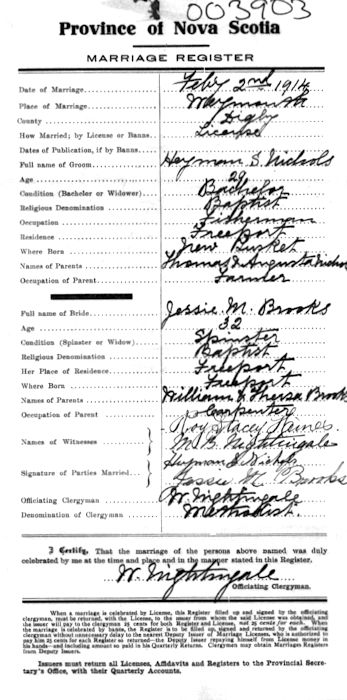 003903
Province of Nova Scotia
MARRIAGE REGISTER
Date of Marriage Feby 2nd 1914
Place of Marriage Weymouth
County Digby
How Married; by License or Banns License
Dates of Publication, if by Banns
Full name of Groom Heyman S. Nichols
Age 29
Condition (Bachelor or Widower) Bachelor
Religious Denomination Baptist
Occupation Fisherman
Residence Freeport
Where Born New
Names of Parents Thomas & Augusta Nichols
Occupation of Parent Farmer
Full name of Bride Jessie M. Brooks
Age 32
Condition (Spinster or Widow) Spinster
Religious Denomination Baptist
Her Place of Residence Freeport
Where Born Freeport
Names of Parents William & Theresa Brooks
Occupation of Parent Carpenter
Names of Witnesses Roy Stacey Haines
M. B. Nightingale
Signature of Parties Married Heyman S Nichols
Jessie M Brooks
Officiating Clergyman W. Nightingale
Denomination of Clergyman Methodist.
I Certify, That the marriage of the persons above named was duly
celebrated by me at the time and place and in the manner stated in this Register.
W. Nightingale
Officiating Clergyman.
When a marriage is celebrated by License, this Register filled up and signed by the officiating
clergyman, must be returned, with the License, to the issuer from whom the said License was obtained, and
the issuer will pay to the clergyman 25 cents for both Register and License, not 25 cents for each. When
the marriage is celebrated by banns, the Register is to be filled up, signed and returned by the officiating
clergyman without unnecessary delay to the nearest Deputy Issuer of Marriage Licenses, who is authorized to
pay him 25 cents for each Register so returned—the Deputy Issuer repaying himself from License money in
his hands—and including amount so paid in his Quarterly Returns. Clergymen may obtain Marriages Registers
from Deputy Issuers.
Issuers must return all Licenses, Affidavits and Registers to the Provincial Secre-
tary's Office, with their Quarterly Accounts.